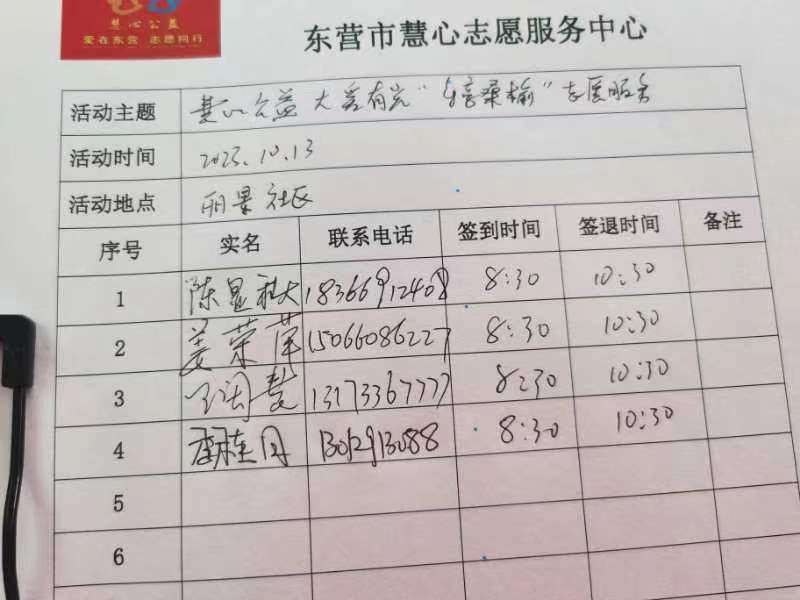 慧心公益
爱在东营 志愿同行
东营市慧心志愿服务中心
活动主题 慧心公益 大爱有光“情暖桑榆”志愿服务
活动时间 2023.10.13
活动地点 丽景社区
序号 实名 联系电话 签到时间 签退时间 备注
1 陈显 18366912408 8:30 10:30
2 姜荣萍 15066086227 8:30 10:30
3 13173367777 8:30 10:30
4 桂月 13012913088 8:30 10:30
5
6